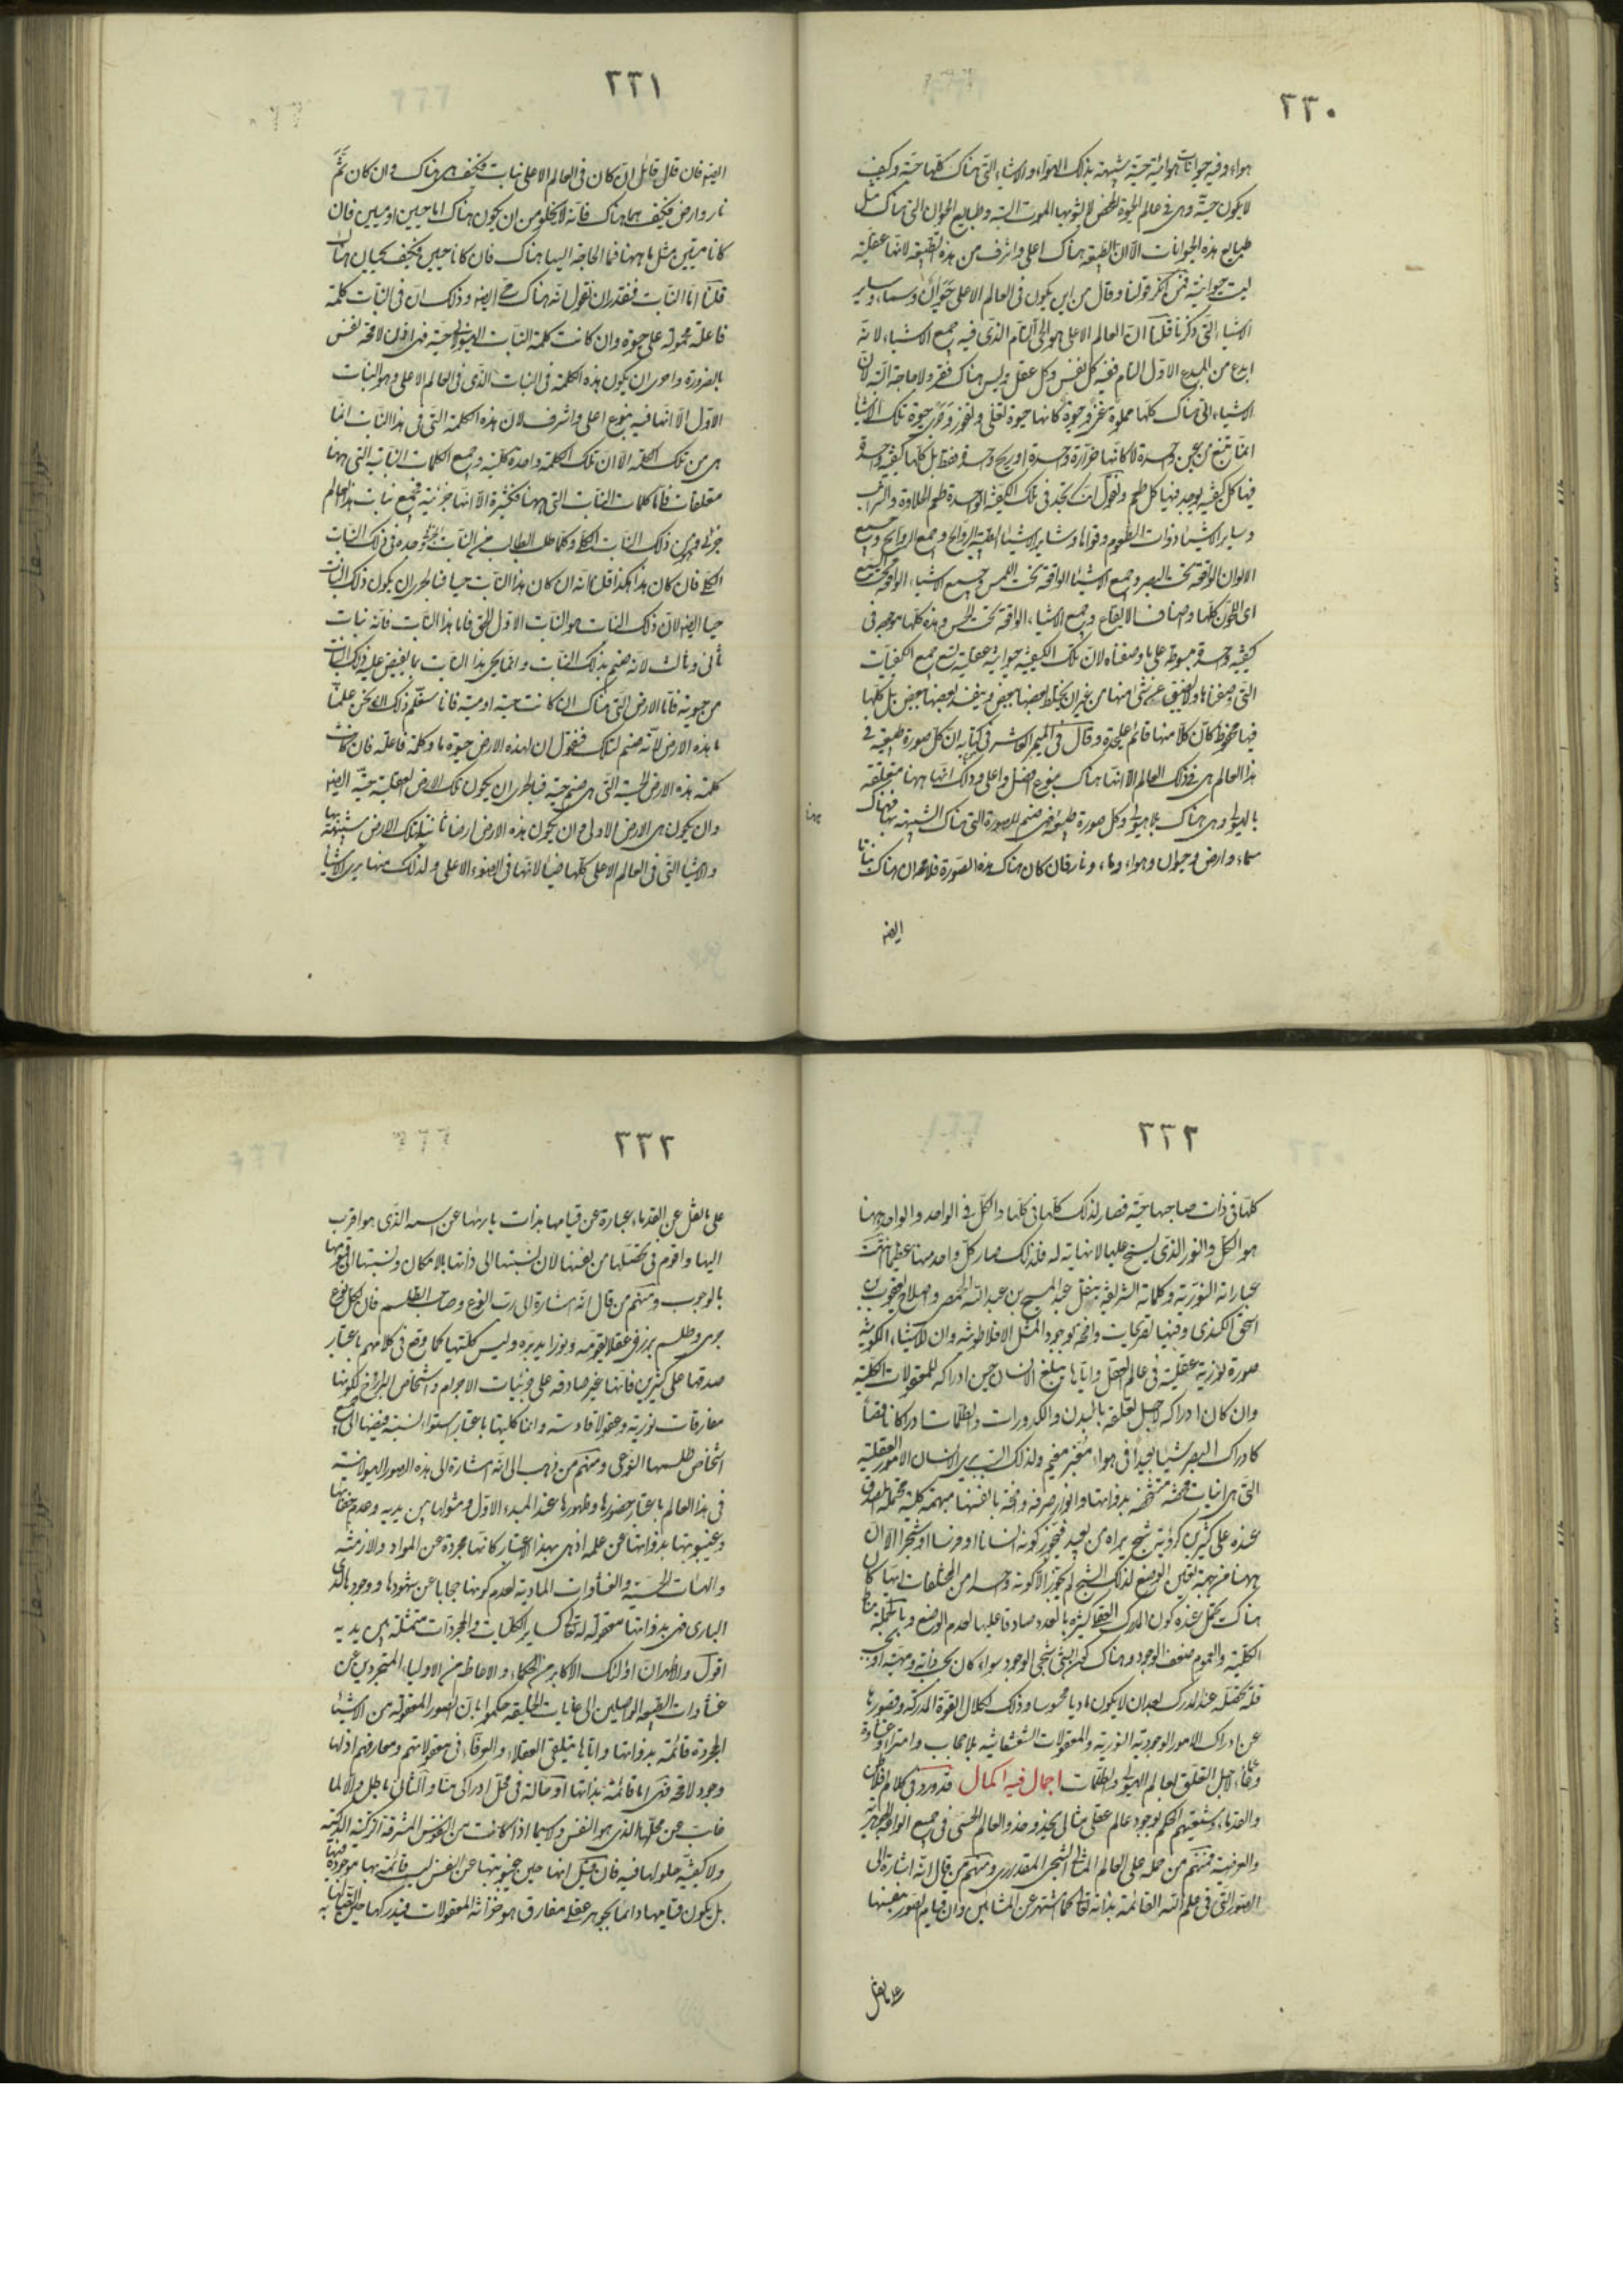 ٢٣٠
هواء وفيه حيوانات هوائية حية شبيهة بذلك الهواء والاشياء التى هناك كلها حية وكيف
لا يكون حية وهى فى عالم الحيوة المحض لا يشوبها الموت البتة وطبايع الحيوان التى هناك مثل
طبايع هذه الحيوانات الا ان الطبيعة هناك اعلى واشرف من هذه الطبيعة لانها عقلية
ليست حيوانية فمن انكر قولنا وقال من اين يكون فى العالم الاعلى حيوان وسماء وساير
الاشياء التى ذكرنا قلنا ان العالم الاعلى هو الحى التام الذى فيه جميع الاشياء لانه
ابدع من المبدع الاول التام ففيه كل نفس وكل عقل وليس هناك فقر ولا حاجة البتة لان
الاشياء التى هناك كلها مملوة غنى وحيوة كانها حيوة تغلى وتفور وجرى حيوة تلك الاشياء
انما تنبع من عين واحدة لا كانها حرارة واحدة او ريح واحدة فقط بل كلها كيفية واحدة
فيها كل كيفية يوجد فيها كل طعم ونقول انك تجد فى تلك الكيفية الواحدة طعم الحلاوة والشراب
وساير الاشياء ذوات الطعوم وقواها وساير الاشياء الطيبة الروايح وجميع الروايح وجميع
الالوان الواقعة تحت البصر وجميع الاشياء الواقعة تحت اللمس وجميع الاشياء الواقعة تحت السمع
اى اللحون كلها واصناف الايقاع وجميع الاشياء الواقعة تحت الحس وهذه كلها موجودة فى
كيفية واحدة مبسوطة على ما وصفناه لان تلك الكيفية حيوانية عقلية تسع جميع الكيفيات
التى وصفناها ولا يضيق عن شئ منها من غير ان يختلط بعضها ببعض وينفسد بعضها ببعض بل كلها
فيها محفوظ كان كلا منها قائم على حدة وقال فى الميمر العاشر فى كتابه ان كل صورة طبيعية فى
هذا العالم هى فى ذلك العالم الا انها هناك بنوع افضل واعلى وذلك انها ههنا متعلقة
بالهيولى وهى هناك بلا هيولى وكل صورة طبيعية فهى صنم للصورة التى هناك الشبيهة بها فهناك
سماء وارض وحيوان وهواء وماء ونار فان كان هناك هذه الصورة فلا محالة ان هناك نباتا
ايضا
٢٣١
ايضا فان قال قائل ان كان فى العالم الاعلى نبات فكيف هى هناك وان كان ثم
نار وارض فكيف هما هناك فانه لا يخلو من ان يكون هناك اما حيين او ميتين فان
كانا ميتين مثل ما ههنا فما الحاجة اليها هناك فان كانا حيين فكيف يحييان هناك
قلنا اما النبات فنقدر ان نقول انه هناك حى ايضا وذلك ان فى النبات كلمة
فاعلة محمولة على حيوة وان كانت كلمة النبات الهيولانى حية فهى اذن لا محة نفس
بالضرورة واحرى ان يكون هذه الكلمة فى النبات الذى فى العالم الاعلى وهو النبات
الاول الا انها فيه بنوع اعلى واشرف لان هذه الكلمة التى فى هذا النبات انما
هى من تلك الكلمة الا ان تلك الكلمة واحدة كلية وجميع الكلمات النباتية التى ههنا
متعلقات فاما كلمات النبات التى ههنا فكثيرة الا انها جزئية فجميع نبات هذا العالم
جزئى وهو من ذلك النبات الكلى وكلما طلب الطالب من النبات الجزئى وجده فى ذلك النبات
الكلى فان كان هذا هكذا قلنا انه ان كان هذا النبات حيا فبالحرى ان يكون ذلك النبات
حيا ايضا لان ذلك النبات هو النبات الاول الحق فاما هذا النبات فانه نبات
ثانى وثالث لانه صنم لذلك النبات وانما يحيى هذا النبات بما يفيض عليه ذلك النبات
من حيوته فاما الارض التى هناك ان كانت حية او ميتة فانا سنعلم ذلك ان نحن علمنا
ما هذه الارض لانه صنم لتلك فنقول ان لهذه الارض حيوة ما وكلمة فاعلة فان كانت
كلمة هذه الارض الحسية التى هى صنم حية فبالحرى ان يكون تلك الارض العقلية حية ايضا
وان يكون هى الارض الاولى وان يكون هذه الارض ارضا ثانية لتلك الارض شبيهة بها
والاشياء التى فى العالم الاعلى كلها ضياء لانها فى الضوء الاعلى ولذلك منها يرى الاشياء
٢٣٢
كلها فى ذات صاحبها حية فصار لذلك كلها فى كلها والكل فى الواحد والواحد منها
هو الكل والنور الذى يسنح عليها لا نهاية له فلذلك صار كل واحد منها عظيما انتهت
عباراته النورية وكلماته الشريفة بنقل عبد المسيح بن عبد الله الحمصى واصلاح يعقوب بن
اسحق الكندى وفيها تصريحات واضحة بوجود المثل الافلاطونية وان للاشياء الكونية
صورة نورية عقلية فى عالم العقل واياها يبلغ الانسان حين ادراكه للمعقولات الكلية
وان كان ادراكه لاجل تعلقه بالبدن والكدورات والظلمات ادراكا ناقصا
كادراك البصر شيئا بعيدا فى هواء مغبر مغيم ولذلك السبب يرى الانسان الامور العقلية
التى هى انيات محضة متشخصة بذواتها وانوار صرفة واضحة بانفسها مبهمة كلية محتملة الصدق
عنده على كثيرين كرؤية شبح يراه من بعيد فيجوز كونه انسانا او فرسا او شجرا الا ان
ههنا من جهة تعين الوضع لذلك الشبح لم يجوز الا كونه واحدا من المختلفات ايها كان
هناك يحتمل عنده كون المدرك العقلى كثيرة بالعدد صادقا عليها لعدم الوضع وبالجملة مناط
الكلية والعموم ضعف الوجود وهناك كون الشئ شبحى الوجود سواء كان بحسب ذاته ومهيته او بحسب
قلة تحصله عند المدرك بعد ان لا يكون ماديا محسوسا وذلك لكلال القوة المدركة وقصورها
عن ادراك الامور الوجودية النورية والمعقولات الشعشعانية بلا حجاب وامتراء وغشاوة
وعماء لاجل التعلق بعالم الهيولى والظلمات اجمال فيه اكمال قد ورد فى كلام افلاطن
والقدماء وشيعتهم الحكم بوجود عالم عقلى مثالى يحذو حذو العالم الحسى فى جميع انواعه الجوهرية
والعرضية فمنهم من حمله على العالم المثالى الشبحى المقدارى ومنهم من قال انه اشارة الى
الصور التى فى علم الله القائمة بذاته تعالى كما اشتهر عن المشائين وان قيام الصور بنفسها
على ما نقل
٢٣٣
على ما نقل عن القدماء عبارة عن قيامها بذات باريها عن اسمه الذى هو اقرب
اليها واقوم فى تحصلها من نفسها لان نسبتها الى ذاتها بالامكان ونسبتها الى قيومها
بالوجوب ومنهم من قال انه اشارة الى رب النوع وصاحب الطلسم فان لكل نوع
جرمى وطلسم برزخى عقلا يقومه ونورا يدبره وليس كليتها كما وقع فى كلامهم باعتبار
صدقها على كثيرين فانها غير صادقة على جزئيات الاجرام واشخاص البرازخ لكونها
مفارقات نورية وعقولا قادسة وانما كليتها باعتبار استواء نسبة فيضها الى جميع
اشخاص طلسمها النوعى ومنهم من ذهب الى انه اشارة الى هذه الصور الهيولانية
فى هذا العالم باعتبار حضورها وظهورها عند المبدء الاول ومثولها بين يديه وعدم خفائها
وغيبوبتها بذواتها عن علمه اذ هى بهذا الاعتبار كانها مجردة عن المواد والازمنة
والهيات الحسية والغشاوات المادية لعدم كونها حجابا عن شهودها ووجودها لدى
البارى فهى بذواتها معقولة له تعالى كساير الكليات والمجردات متمثلة بين يديه
اقول والاظهر ان اولئك الاكابر من الحكماء والاعاظم من الاولياء المتجردين عن
غشاوات الطبيعة الواصلين الى غايات الخليقة حكموا بان الصور المعقولة من الاشياء
المجردة قائمة بذواتها واياها يتلقى العقلاء والعرفاء فى معقولاتهم ومعارفهم اذ لها
وجود لا محة فهى اما قائمة بذاتها او حالة فى محل ادراكى منا والثانى باطل والا لما
غابت عن محلها الذى هو النفس ولا سيما اذا كانت من النفوس المشرقة الزكية الذكية
ولا كيفية حلولها فيه فان قيل انها حين غيبوبتها عن النفس ليست قائمة بها موجودة فيها
بل يكون قيامها دائما بجوهر عقلى مفارق هو خزانة المعقولات فيدركها حين اتصالها به